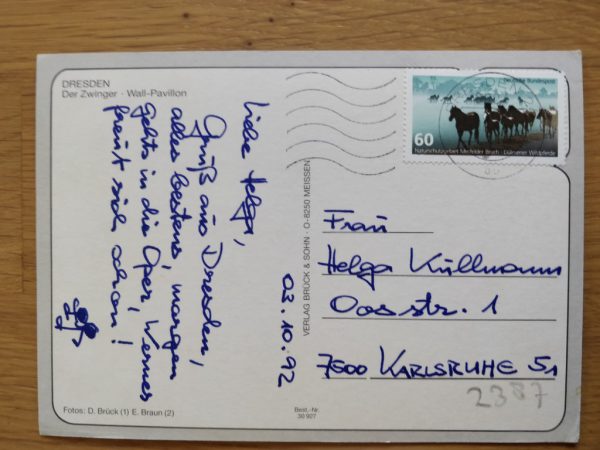 DRESDEN
Der Zwinger · Wall-Pavillon
Liebe Helga,
Gruß aus Dresden,
alles bestens, morgen
gehts in die Oper, Werner
freut sich schon!
03.10.92
Fotos: D. Brück (1) E. Braun (2)
VERLAG BRÜCK & SOHN · O-8250 MEISSEN
Best.-Nr.
30 927
Deutsche Bundespost
60
Naturschutzgebiet Merfelder Bruch · Dülmener Wildpferde
Frau
Helga Küllmann
Oosstr. 1
7500 KARLSRUHE 51
2387